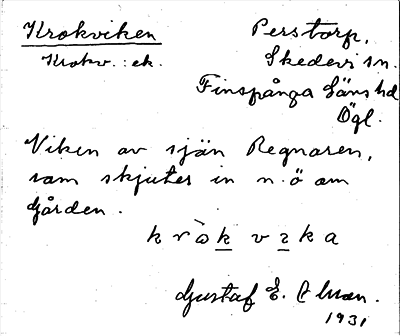 Krokviken
Krokv. : ek.
Perstorp,
Skedevi sn.
Finspånga läns hd
Ögl.
Viken av sjön Regnaren,
som skjuter in n.ö om
gården.
kròk vika
Gustaf E. Alman.
1931